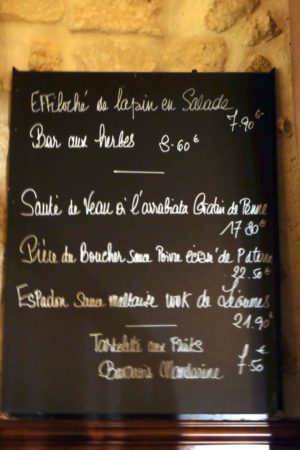 Effiloché de lapin en Salade
7.90€
Bar aux herbes 8.60€
Sauté de Veau à l'arrabiata Gratin de Penne
17.80€
Pièce du Boucher sauce Poivre écrasé de P.d terre
22.50€
Espadon Sauce maltaise wok de Légumes
21.90€
Tartelette aux Fruits €
Bavarois Mandarine 7.50